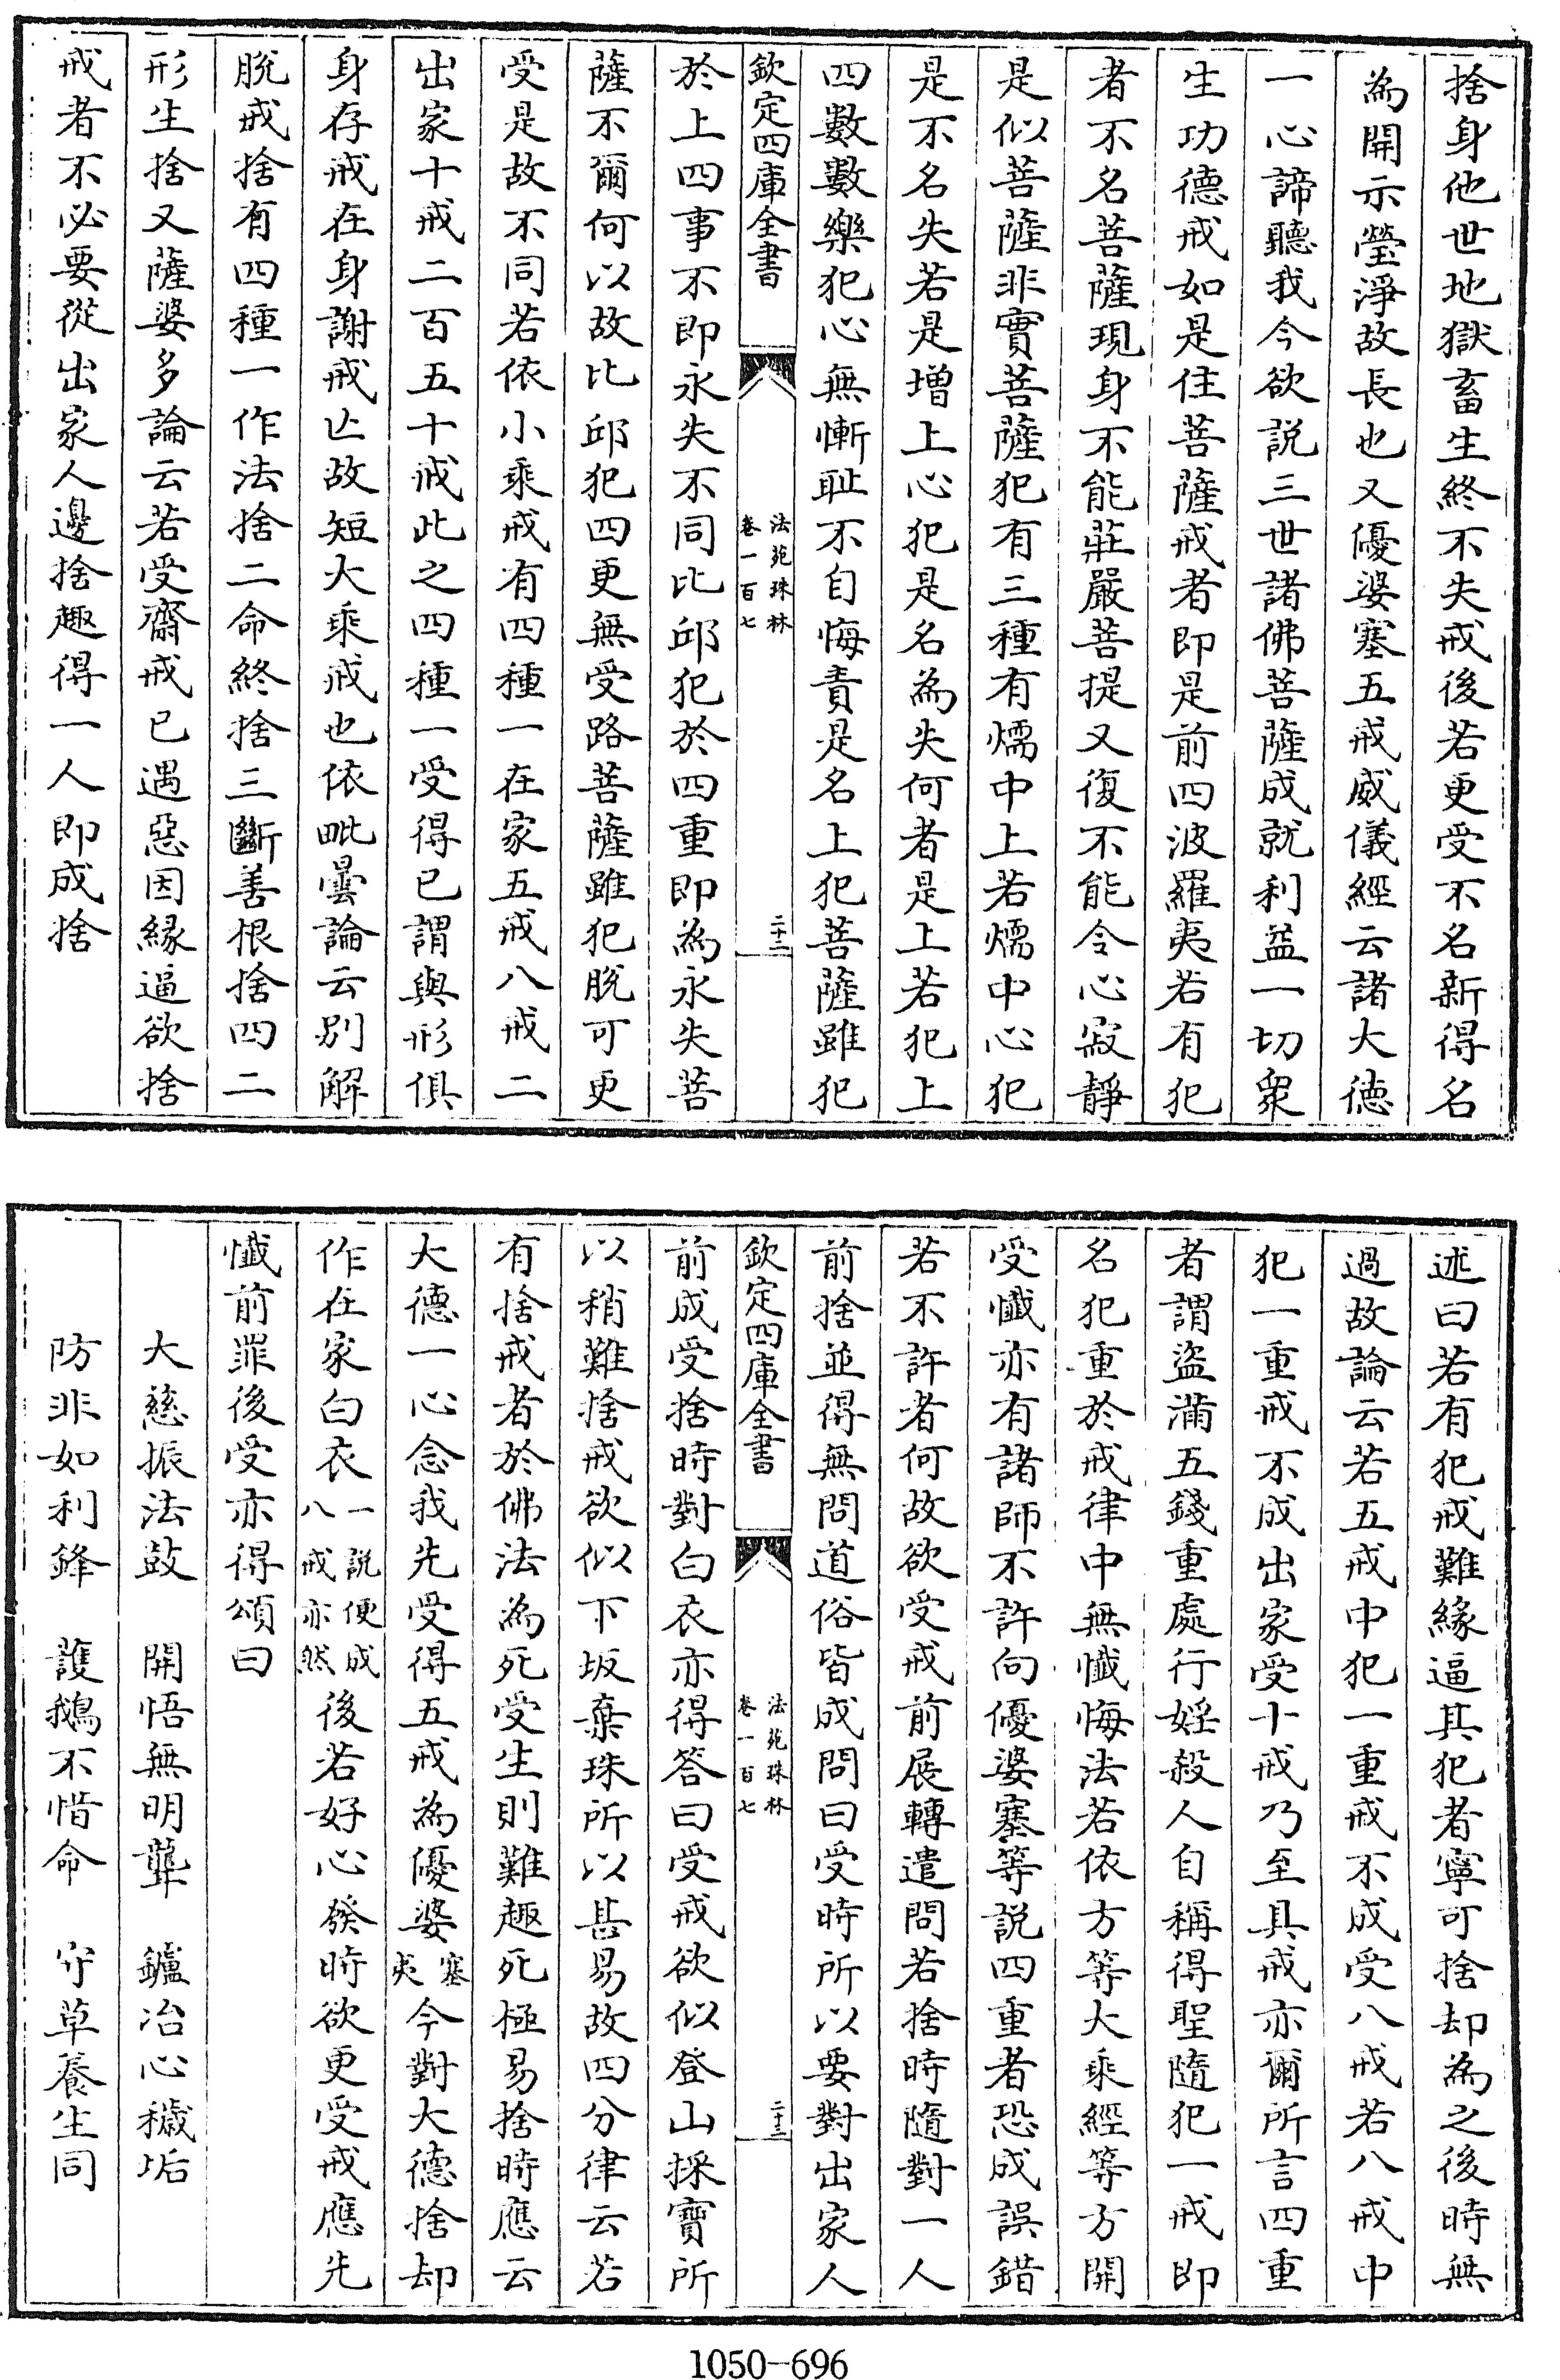 捨身他世地獄畜生終不失戒後若更受不名新得名
為開示瑩淨故長也又優婆塞五戒威儀經云諸大德
一心諦聽我今欲説三世諸佛菩薩成就利益一切衆
生功德戒如是住菩薩戒者即是前四波羅夷若有犯
者不名菩薩現身不能莊嚴菩提又復不能令心寂靜
是似菩薩非實菩薩犯有三種有燸中上若燸中心犯
是不名失若是增上心犯是名為失何者是上若犯上
四數數樂犯心無慚耻不自悔責是名上犯菩薩雖犯
欽定四庫全書
法苑珠林
卷一百七
二十二
於上四事不即永失不同比邱犯於四重即為永失菩
薩不爾何以故比邱犯四更無受路菩薩雖犯脫可更
受是故不同若依小乘戒有四種一在家五戒八戒二
出家十戒二百五十戒此之四種一受得已謂與形俱
身存戒在身謝戒亡故短大乘戒也依毗曇論云别解
脫戒捨有四種一作法捨二命終捨三斷善根捨四二
形生捨又薩婆多論云若受齋戒已遇惡因緣逼欲捨
戒者不必要從出家人邊捨趣得一人即成捨
述曰若有犯戒難緣逼其犯者寧可捨却為之後時無
過故論云若五戒中犯一重戒不成受八戒若八戒中
犯一重戒不成出家受十戒乃至具戒亦爾所言四重
者謂盜滿五錢重處行婬殺人自稱得聖隨犯一戒即
名犯重於戒律中無懺悔法若依方等大乘經等方開
受懺亦有諸師不許向優婆塞等説四重者恐成誤錯
若不許者何故欲受戒前展轉遣問若捨時隨對一人
前捨並得無問道俗皆成問曰受時所以要對出家人
欽定四庫全書
法苑珠林
卷一百七
二十三
前成受捨時對白衣亦得答曰受戒欲似登山採寶所
以稍難捨戒欲似下坂棄珠所以甚易故四分律云若
有捨戒者於佛法為死受生則難趣死極易捨時應云
大德一心念我先受得五戒為優婆塞夷今對大德捨却
作在家白衣一說便成八戒亦然後若好心發時欲更受戒應先
懺前罪後受亦得頌曰
大慈振法鼓　開悟無明聾　鑪冶心穢垢
防非如利鋒　護鵝不惜命　守草養生同
1050-696